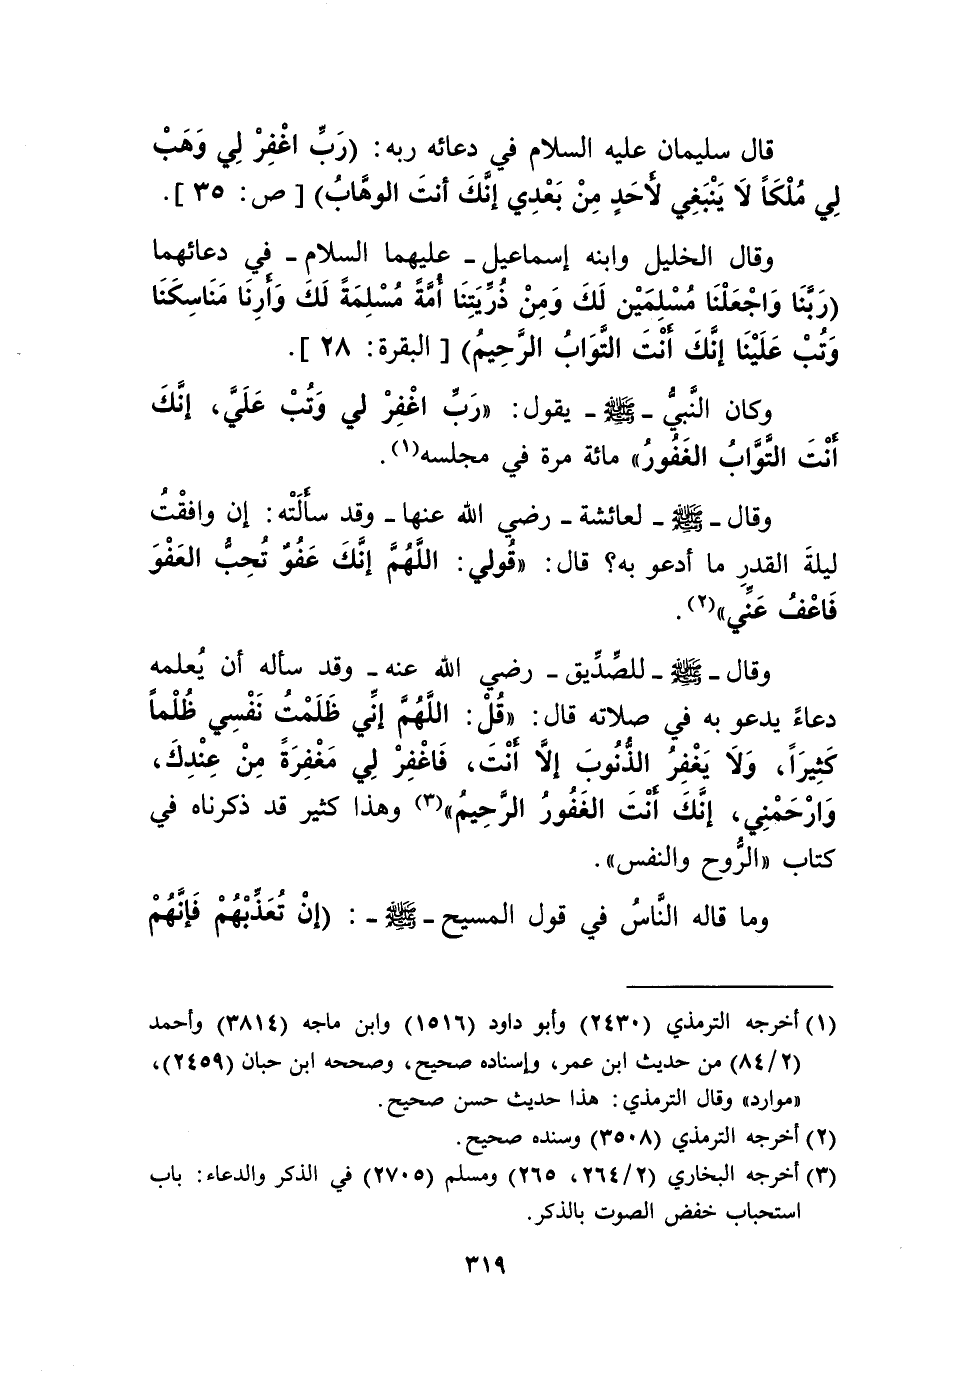 قال سليمان عليه السلام في دعائه ربه: (رَبِّ اغْفِرْ لِي وَهَبْ
لِي مُلْكَاً لَا يَنْبَغِي لأَحَدٍ مِنْ بَعْدِي إنَّكَ أنتَ الوهَّابُ) [ ص: ٣٥ ].
وقال الخليل وابنه إسماعيل ـ عليهما السلام ـ في دعائهما
(رَبَّنَا وَاجْعَلْنَا مُسْلِمَيْن لَكَ وَمِنْ ذُرِّيَتِنَا أُمَّةً مُسْلِمَةً لَكَ وَأَرِنَا مَنَاسِكَنَا
وَتُبْ عَلَيْنَا إنَّكَ أَنْتَ التَّوَابُ الرَّحِيمُ) [ البقرة: ٢٨ ].
وكان النَّبيُّ ـ ﷺ ـ يقول: «رَبِّ اغْفِرْ لي وَتُبْ عَلَيَّ، إنَّكَ
أَنْتَ التَّوَّابُ الغَفُورُ» مائة مرة في مجلسه(١).
وقال ـ ﷺ ـ لعائشة ـ رضي الله عنها ـ وقد سأَلَتْه: إن وافقْتُ
ليلةَ القدرِ ما أدعو به؟ قال: «قُولي: اللَّهُمَّ إنَّكَ عَفُوٌ تُحِبُّ العَفْوَ
فَاعْفُ عَنِّي»(٢).
وقال ـ ﷺ ـ للصِّدِّيق ـ رضي الله عنه ـ وقد سأله أن يُعلمه
دعاءً يدعو به في صلاته قال: «قُلْ: اللَّهُمَّ إنِّي ظَلَمْتُ نَفْسِي ظُلْماً
كَثِيرَاً، وَلَا يَغْفِرُ الذُّنُوبَ إلَّا أَنْتَ، فَاغْفِرْ لِي مَغْفِرَةً مِنْ عِنْدِكَ،
وَارْحَمْنِي، إنَّكَ أَنْتَ الغَفُورُ الرَّحِيمُ»(٣) وهذا كثير قد ذكرناه في
كتاب «الرُّوح والنفس».
وما قاله النَّاسُ في قول المسيح ـ ﷺ ـ : (إنْ تُعَذِّبْهُمْ فَإنَّهُمْ
(١) أخرجه الترمذي (٢٤٣٠) وأبو داود (١٥١٦) وابن ماجه (٣٨١٤) وأحمد
(٨٤/٢) من حديث ابن عمر، وإسناده صحيح، وصححه ابن حبان (٢٤٥٩)،
«موارد» وقال الترمذي: هذا حديث حسن صحيح.
(٢) أخرجه الترمذي (٣٥٠٨) وسنده صحيح.
(٣) أخرجه البخاري (٢٦٤/٢، ٢٦٥) ومسلم (٢٧٠٥) في الذكر والدعاء: باب
استحباب خفض الصوت بالذكر.
٣١٩